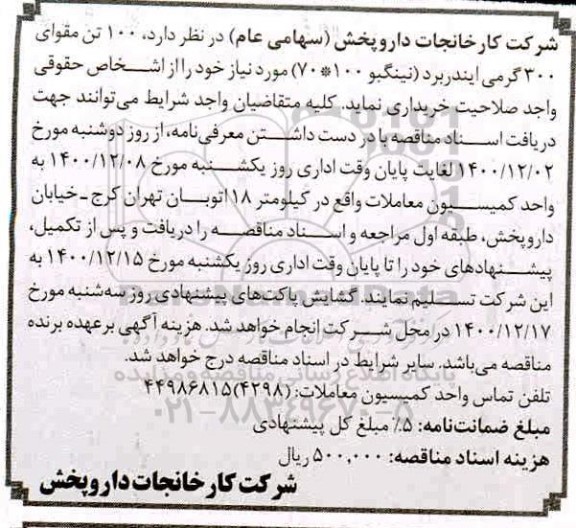 شرکت کارخانجات داروپخش (سهامی عام) در نظر دارد، ۱۰۰ تن مقوای
۳۰۰ گرمی ایندربرد (نینگبو ۱۰۰*۷۰) مورد نیاز خود را از اشخاص حقوقی
واجد صلاحیت خریداری نماید. کلیه متقاضیان واجد شرایط می‌توانند جهت
دریافت اسناد مناقصه با در دست داشتن معرفی‌نامه، از روز دوشنبه مورخ
۱۴۰۰/۱۲/۰۲ لغایت پایان وقت اداری روز یکشنبه مورخ ۱۴۰۰/۱۲/۰۸ به
واحد کمیسیون معاملات واقع در کیلومتر ۱۸ اتوبان تهران کرج - خیابان
داروپخش، طبقه اول مراجعه و اسناد مناقصه را دریافت و پس از تکمیل،
پیشنهادهای خود را تا پایان وقت اداری روز یکشنبه مورخ ۱۴۰۰/۱۲/۱۵ به
این شرکت تسلیم نمایند. گشایش پاکت‌های پیشنهادی روز سه‌شنبه مورخ
۱۴۰۰/۱۲/۱۷ در محل شرکت انجام خواهد شد. هزینه آگهی برعهده برنده
مناقصه می‌باشد. سایر شرایط در اسناد مناقصه درج خواهد شد.
پایگاه اطلاع رسانی مناقصه و مزایده
تلفن تماس واحد کمیسیون معاملات: (۴۲۹۸) ۴۴۹۸۶۸۱۵
۰۲۱-۸۸۳۴۹۶۷۰-۵
مبلغ ضمانت‌نامه: ۵٪ مبلغ کل پیشنهادی
هزینه اسناد مناقصه: ۵۰۰,۰۰۰ ریال
شرکت کارخانجات داروپخش